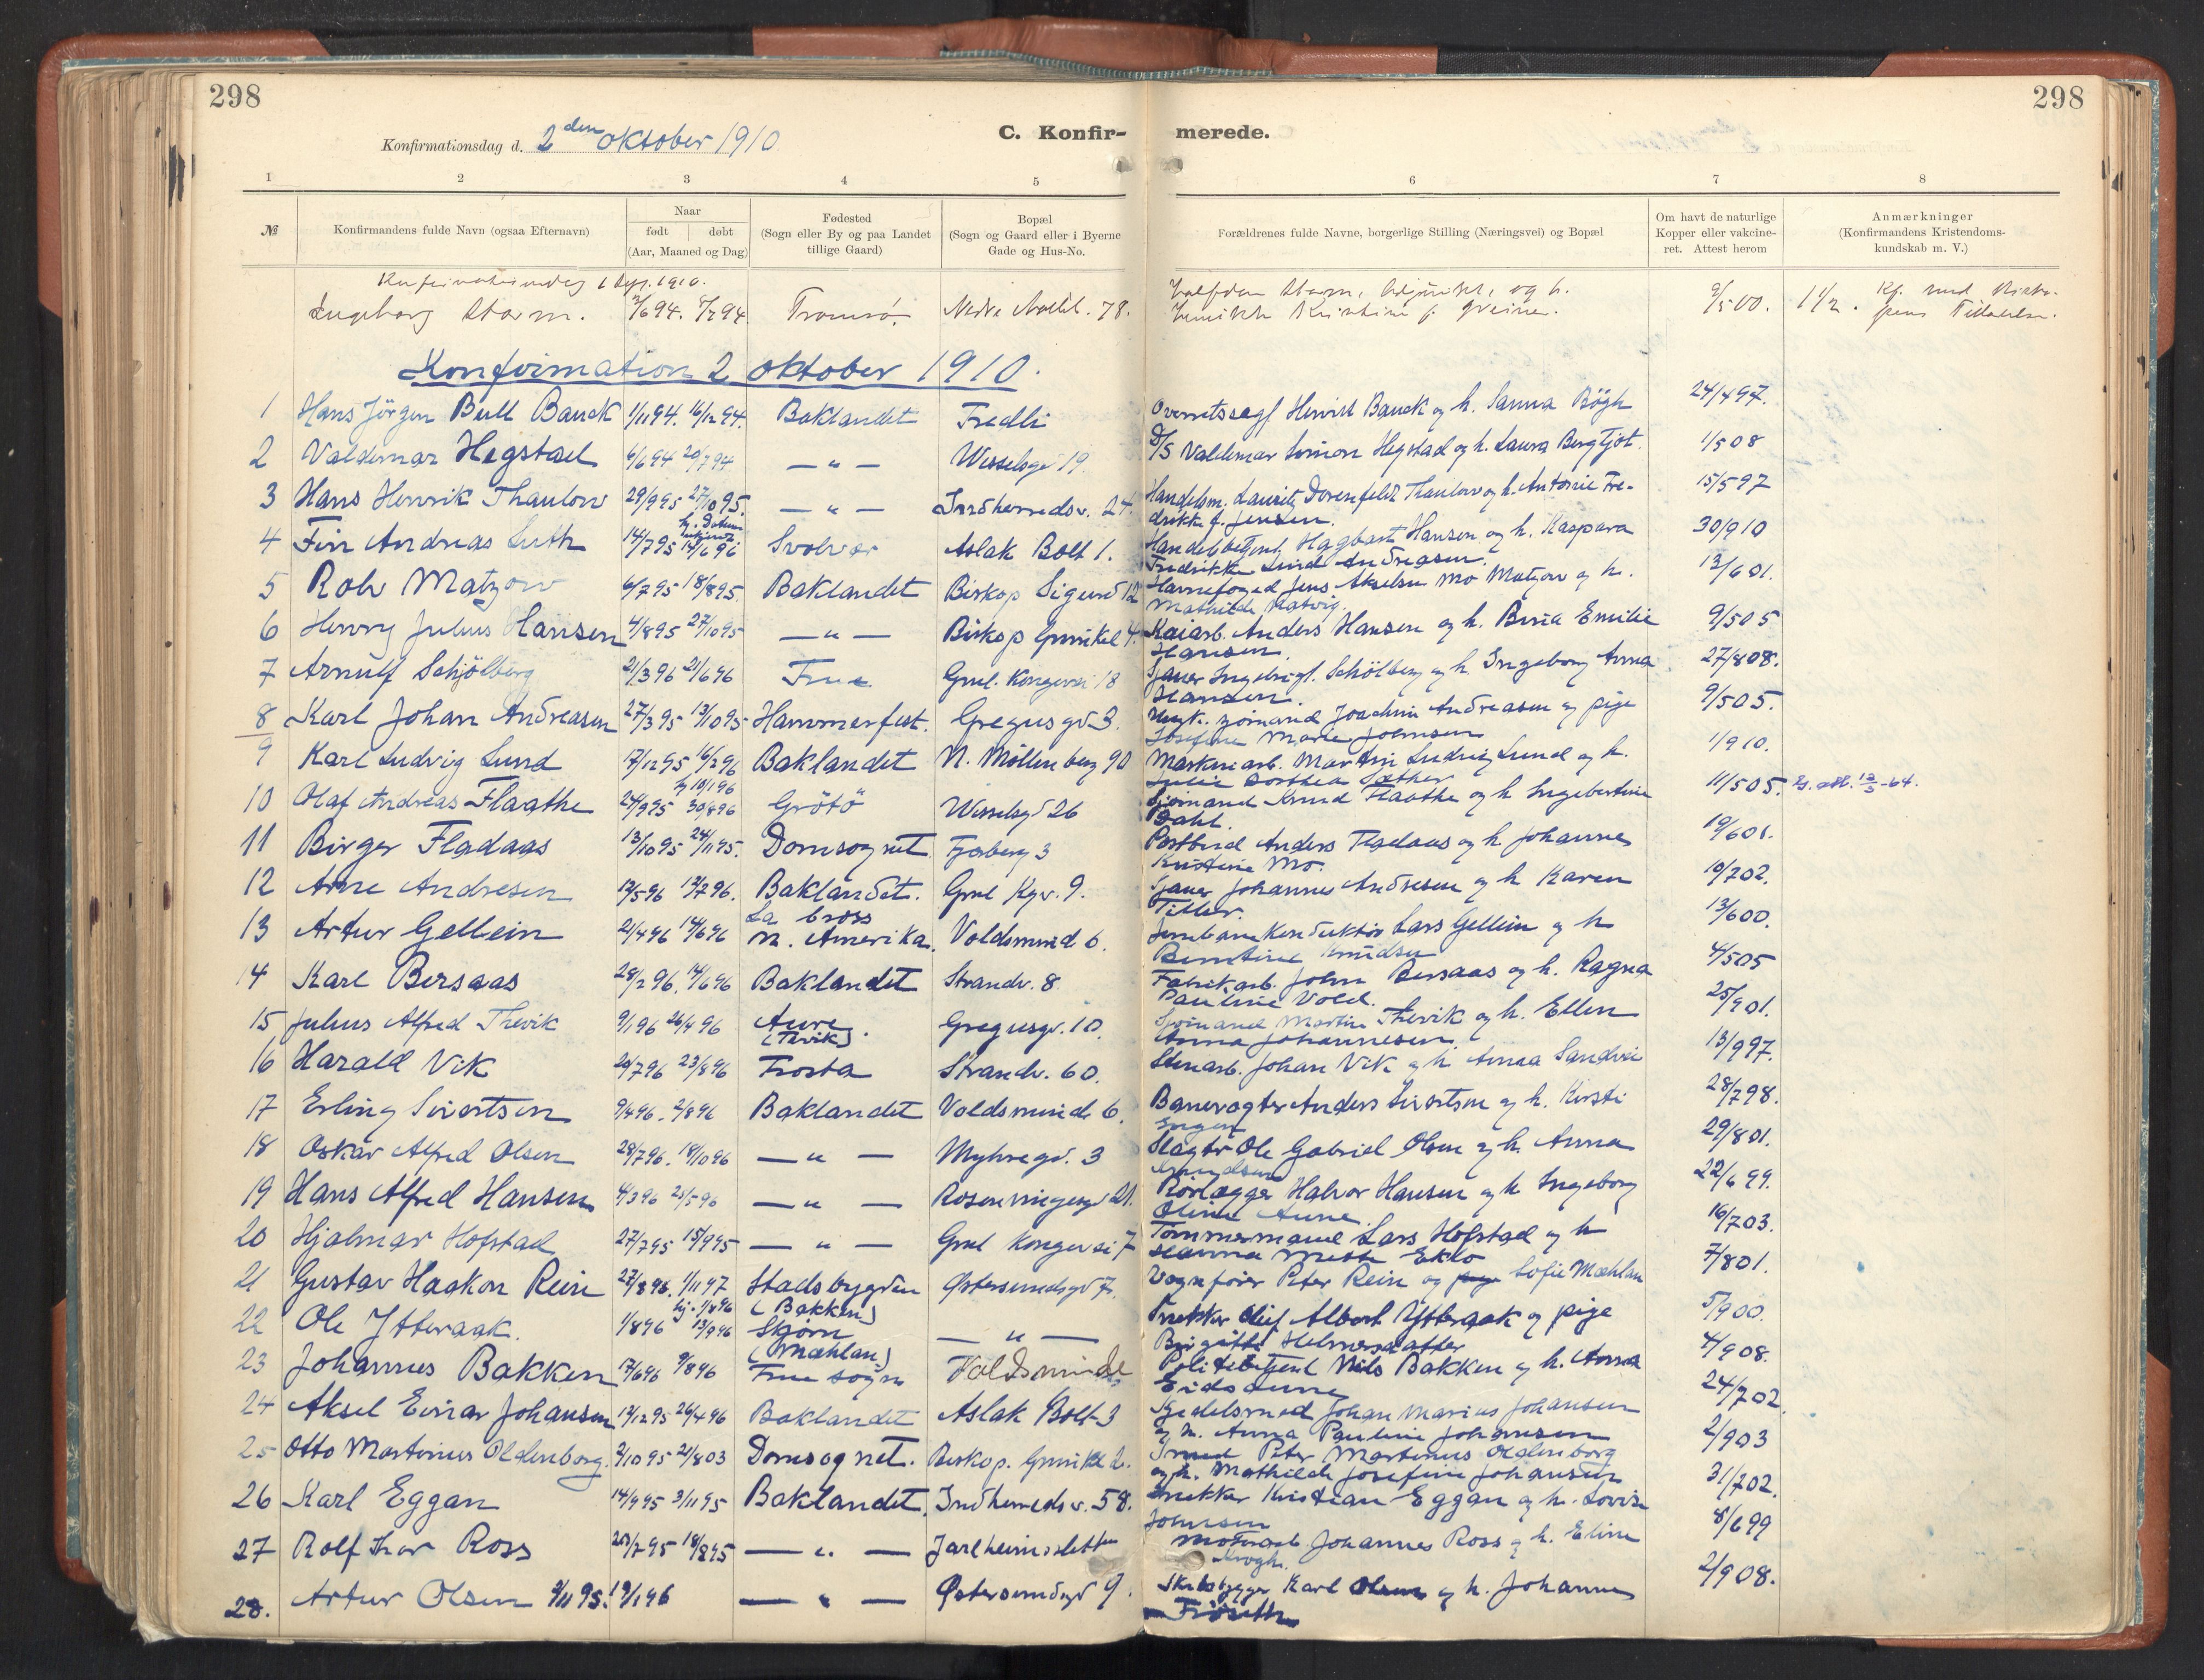 298
298
Konfirmationsdag d. 2den oktober 1910
C. Konfir-
merede.
1 2 3 4 5 6 7 8
№
Konfirmandens fulde Navn (ogsaa Efternavn)
Naar
født døbt
(Aar, Maaned og Dag)
Fødested
(Sogn eller By og paa Landet
tillige Gaard)
Bopæl
(Sogn og Gaard eller i Byerne
Gade og Hus-No.
Forældrenes fulde Navne, borgerlige Stilling (Næringsvei) og Bopæl
Om havt de naturlige
Kopper eller vakcine-
ret. Attest herom
Anmærkninger
(Konfirmandens Kristendoms-
kundskab m. V.)
Ingeborg Storm. Tromsø. 78.
Konfirmation 2 oktober 1910.
1 Hans Jörgen Bull Bauck 1/11 94. 16/12 94. Baklandet Fredli Henrik Bauck og h. Sanna Bøgh 24/4 97.
2 Valdemar Hegstad 6/6 94 20/7 94 — " — Wesselsgd 19 D/S Valdemar Simon Hegstad og h. Laura Bergtjöt. 1/5 08
3 Hans Henrik Thaulow 29/9 95 27/10 95. — " — Indherredsv. 24. Handelsm. Lauritz Dorenfeldt Thaulow og h. Antonie Fre-
drikke f. Jensen. 15/5 97
4 Fin Andreas Luth 14/7 95 14/6 96 Svolvær Aslak Bolt 1. Handelsbetjent Hagbart Hansen og h. Kaspara
Fredrikke Lund Andreasen. 30/9 10
5 Rolv Matzow 6/7 95 18/8 95. Baklandet Biskop Sigurd 12 Havnefoged Jens Akselsen Mo Matzow og h.
Mathilde 13/6 01.
6 Henry Julius Hansen 4/8 95 27/10 95 — " — Biskop Grimkel 4. Kaiarb. Anders Hansen og h. Emilie
Hansen. 9/5 05
7 Arnulf Schjölberg 21/3 96 21/6 96 Frue Gml. Kongevei 18 Sjauer Schölberg og h. Ingeborg Anna
Hansen. 27/8 08.
8 Karl Johan Andreasen 27/3 95 13/10 95 Hammerfest. Gregusgd 3. Joachim Andreasen og pige
Josefine Marie Johnsen 9/5 05.
9 Karl Ludvig Lund 17/12 95 16/2 96 Baklandet N. Möllenberg 90 Maskinarb. Martin Ludvig Lund og h.
Julie Dorthea Sæther 1/9 10.
10 Olaf Andreas Flaathe 24/9 95 30/8 96 Grötö Wesselsgd 26 Sjömand Knud Flaathe og h Ingebertine
Dahl. 11/5 05.
11 Birger Fladaas 13/10 95 24/11 95. Domsognet Fjærberg 3 Postbud Anders Fladaas og h. Johanne
Kristine Mo. 19/6 01.
12 Arne Andresen 12/5 96 12/7 96. Baklandet. Gml Kgv. 9. Sjauer Johannes Andresen og h Karen
Tiller. 10/7 02.
13 Artur Gellein 21/4 96 14/6 96 La Cross
N. Amerika. Voldsmind 6. Jernbanekonduktör Lars Gellein og h
Knudsen 13/6 00.
14 Karl Bersaas 28/2 96. 14/6 96 Baklandet Strandv. 8 Fabrikarb. John Bersaas og h. Ragna
Pauline Vold. 4/5 05
15 Julius Alfred Thevik 9/1 96 26/4 96 Aure.
(Tevik) Gregusgd. 10. Sjömand Martin Thevik og h. Ellen
Anna Johannesen. 25/9 01.
16 Harald Vik 20/7 96 23/8 96 Frosta Strandv. 60. Stenarb. Johan Vik og h Anna Sandvei 13/9 97.
17 Erling Sivertsen 9/4 96. 2/8 96 Baklandet Voldsminde 6. Banevogter Anders Sivertsen og h. Kirsti 28/7 98.
18 Oskar Alfred Olsen 28/7 96. 18/10 96 — " — Myhregd. 3 Slagter Ole Gabriel Olsen og h. Anna 29/8 01.
19 Hans Alfred Hansen 4/3 96 25/5 96 — " — Rosenvingesgd 21. Rörlægger Halvor Hansen og h Ingeborg
Oline Aune. 22/6 99.
20 Hjalmar Hofstad 27/7 95 15/9 95 — " — Gml Kongevei 7 Tømmermand Lars Hofstad og h
Hanna Mette Eklo 16/7 03.
21 Gustav Haakon Rein 27/8 96. 1/11 97 Stadsbygden
(Bakken) Østersundsgd 7. Vognfører Peter Rein og Sofie Mæhlan 7/8 01.
22 Ole Ytteraak. 1/8 96 13/9 96 Skjørn
(Mæhlan) — " — Snekker Oluf Albert Ytteraak og pige
Birgitte Helmersdatter 5/9 00.
23 Johannes Bakken 17/6 96 9/8 96 Frue sogn Voldsminde Politibetjent Nils Bakken og h. Anna
Eidsaune 4/9 08.
24 Aksel Einar Johansen 12/12 95 26/4 96 Baklandet Aslak Bolt 3 Gjødelsmed Johan Marius Johansen
og h. Anna Pauline Johansen 24/7 02.
25 Otto Martinius Oldenborg. 2/10 95 21/8 03 Domsognet. Biskop. Grimkel 2. Smed Peter Martinus Oldenborg
og h. Mathilde Josefine Johansen 2/9 03
26 Karl Eggan 14/9 95 3/11 95 Baklandet. Indherredsv. 58. Snekker Kristian Eggan og h. Lovise
Johnsen 31/7 02.
27 Rolf Ivar Ross 20/7 95 18/8 95 — " — Jarlheimsletten Johannes Ross og h. Eline
Krogh. 8/6 99
28. Artur Olsen 3/11 95. 19/1 96 — " — Østersundsgd 9. Skibsbygger Karl Olsen og h. Johanne
Frøseth 2/9 08.